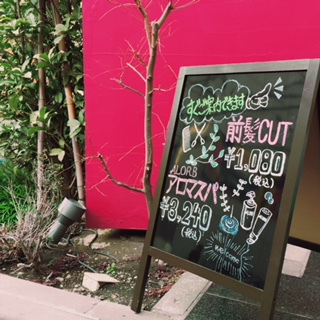 すぐご案内できます
前髪CUT
¥1,080
(税込)
ALORB
アロマスパ
¥3,240
(税込)
Welcome